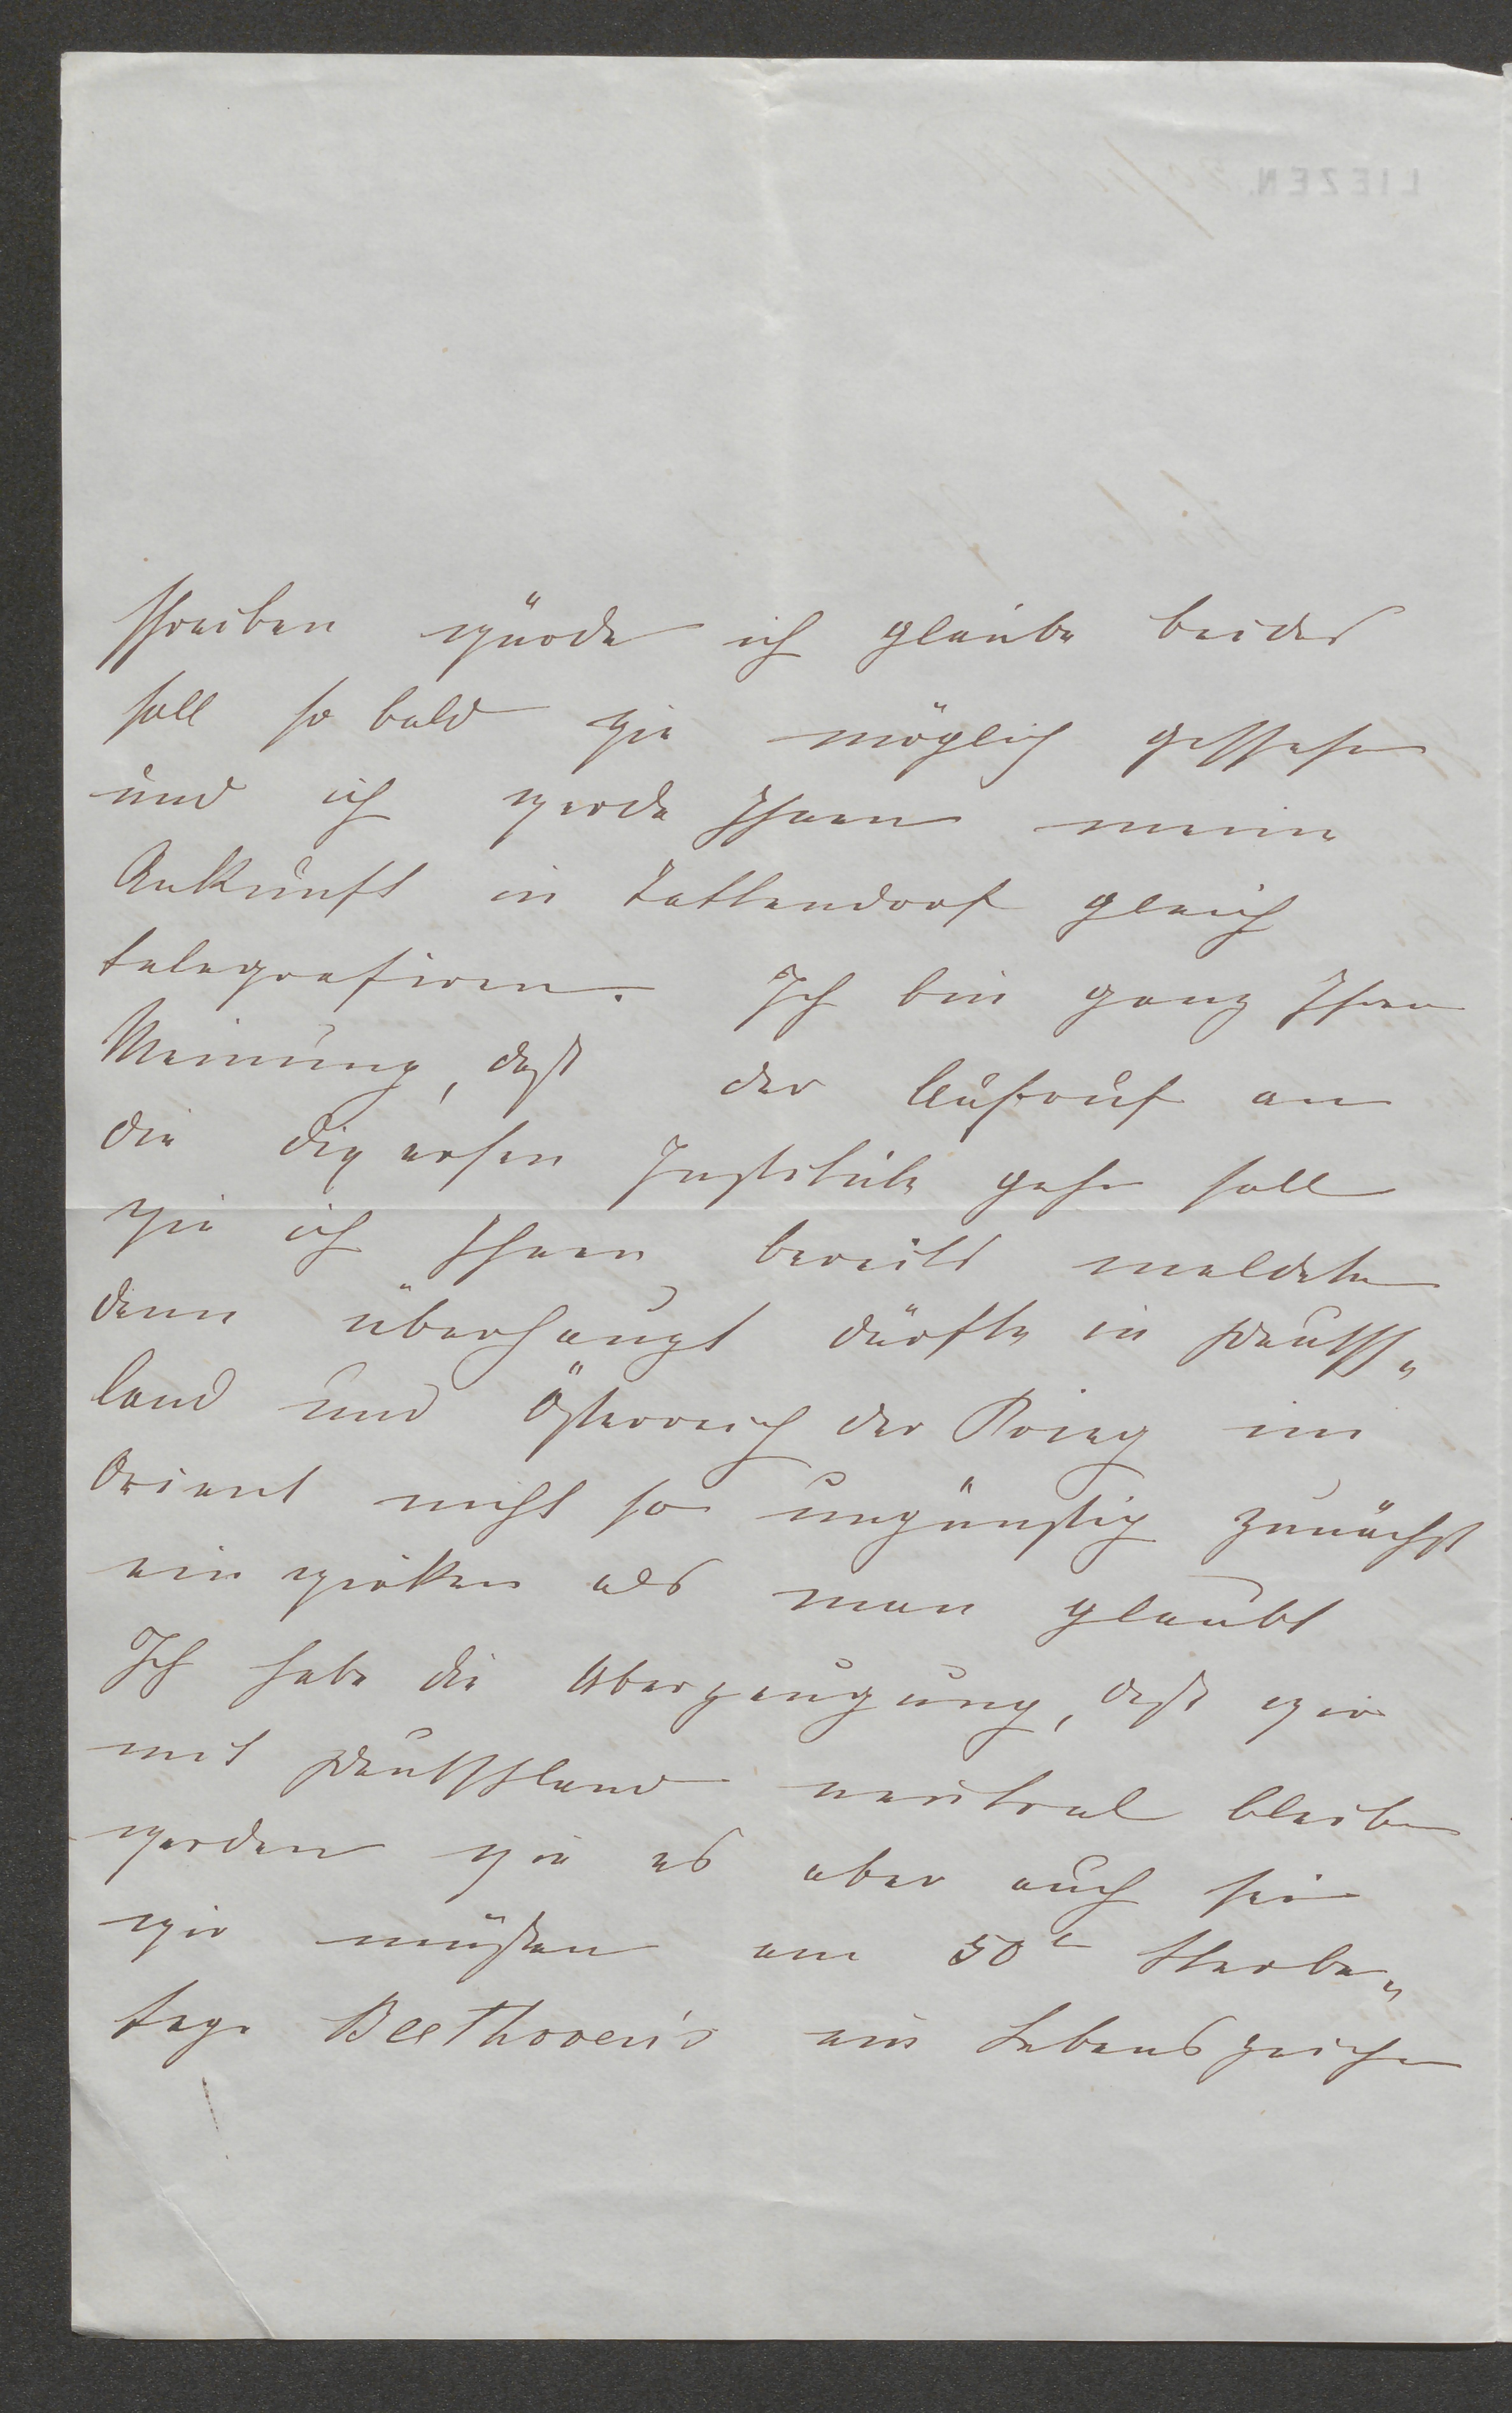 LIEZEN.
schreiben würde ich glaube beides
soll so bald wie möglich geschehen
und ich werde Ihnen meine
Ankunft in Tattendorf gleich
telegrafiren. Ich bin ganz Ihrer
Meinung, daß der Aufruf an
die diversen Institute gehen soll
wie ich Ihnen bereits meldete
denn überhaupt dürfte in Deutsch„
land und Österreich der Krieg im
Orient nicht so ungünstig zunächst
ein wirken als man glaubt
Ich habe die Uberzeugung, daß wir
mit Deutschland neutral bleiben
werden wie es aber auch sei
wir müßen am 50t Sterbe„
tage Beethoven's ein Lebenszeichen